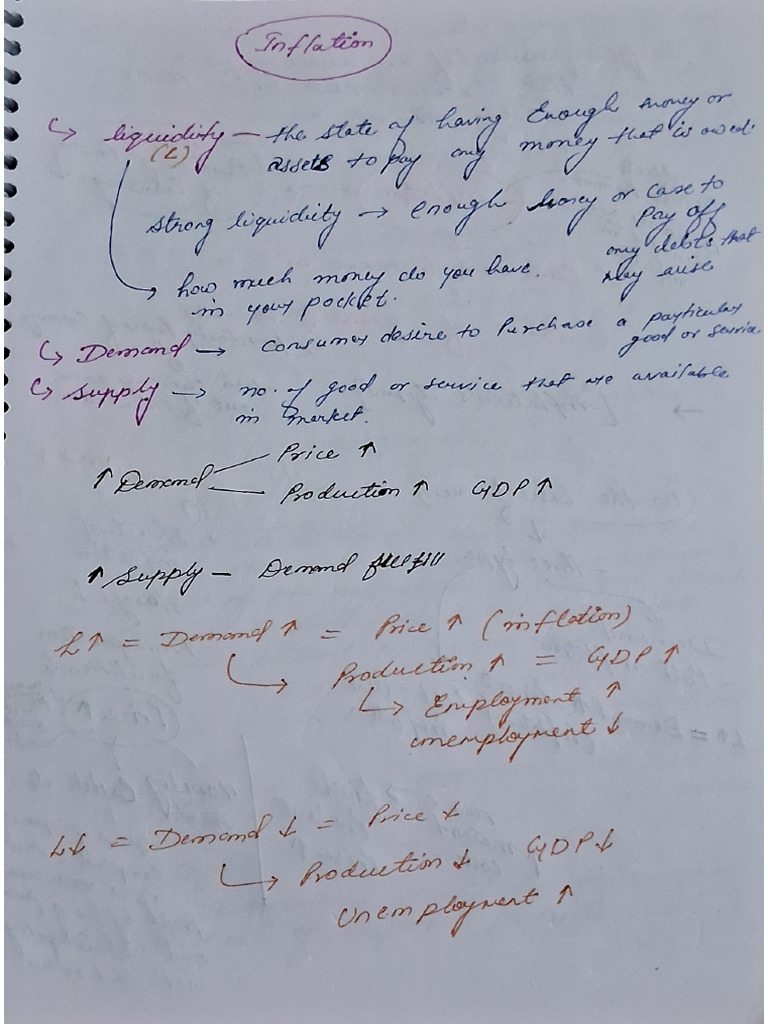 Inflation
↳ liquidity — the state of having Enough money or
(L) assets to pay any money that is owed.
strong liquidity → enough money or case to
pay off
any debts that
may arise
how much money do you have.
in your pocket.
↳ Demand → Consumer desire to Purchase a particular
good or service.
↳ Supply → no. of good or service that are available
in market.
↑ Demand — Price ↑
— Production ↑ GDP ↑
↑ Supply — Demand fullfill
L↑ = Demand ↑ = Price ↑ (inflation)
↳ Production ↑ = GDP ↑
↳ Employment ↑
unemployment ↓
L↓ = Demand ↓ = Price ↓
↳ Production ↓ GDP ↓
Unemployment ↑